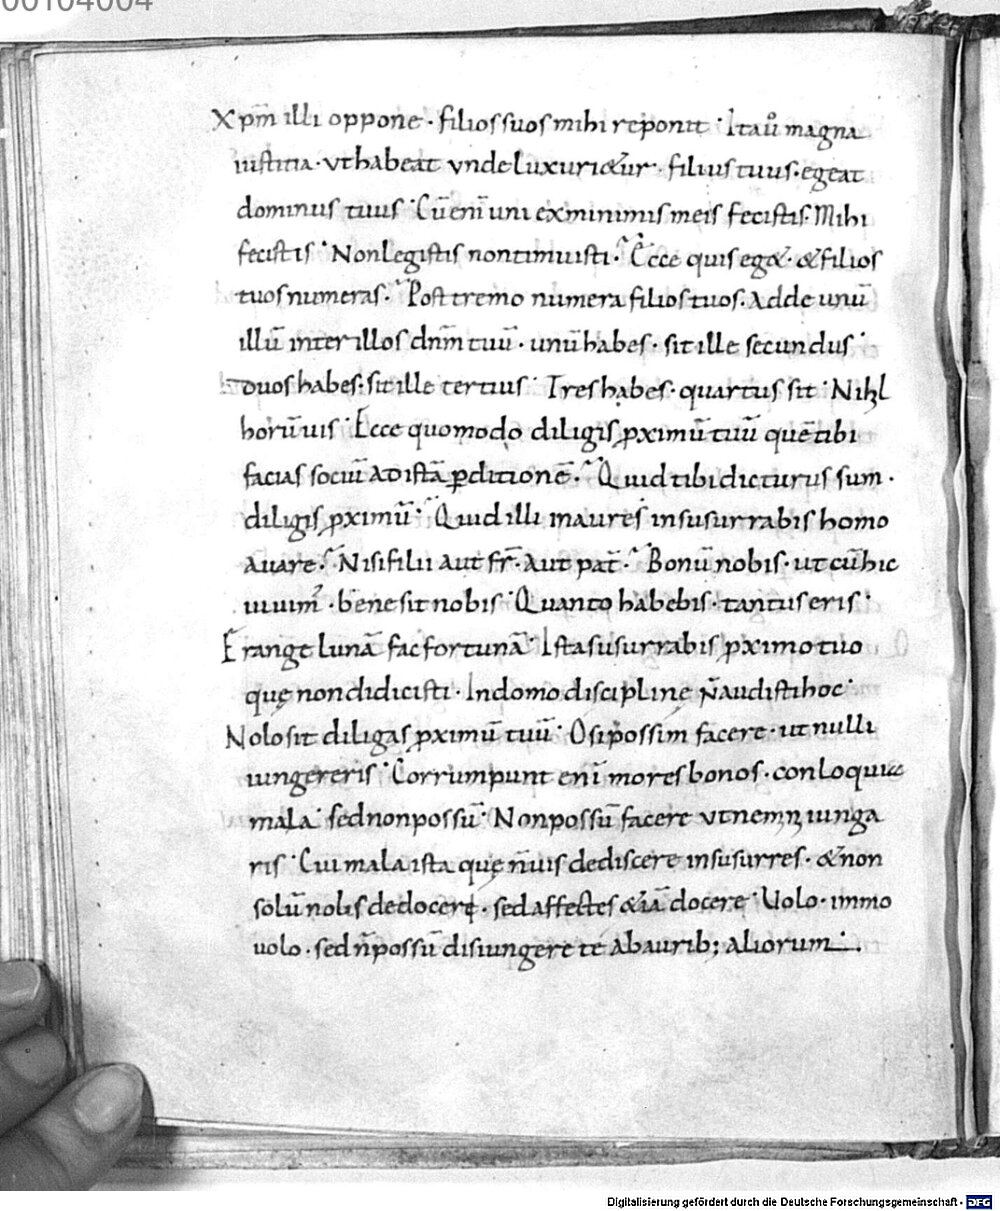 00104004
Xpm̄ illi oppone · filios suos mihi reponit · Ita uº magna
iustitia · vt habeat vnde luxuri&ur · filius tuus · egeat
dominus tuus · Cū enī uni ex minimis meis fecistis · Mihi
fecistis · Non legistis non timuisti · Ecce quis eg& · & filios
tuos numeras · Post tremo numera filios tuos · Adde unū
illū inter illos dnm̄ tuū · unū habes · sit ille secundus ·
duos habes · sit ille tertius · Tres habes · quartus sit · Nihl
horū uis · Ecce quomodo diligis ꝓximū tuū quē tibi
facias sociū ad istā ꝑditionē · Quid tibi dicturus sum ·
diligis ꝓximū · Quid illi inaures insusurrabis homo
auare · Nisi filii aut fr̄ · aut pat̄ · Bonū nobis · ut cū hic
uiuim᷒ · bene sit nobis · Quanto habebis · tantus eris ·
Frange lunā fac fortunā · Ista susurrabis ꝓximo tuo
quę non didicisti · In domo discipline n̄ audisti hoc ·
Nolo sit diligas ꝓximū tuū · O si possim facere · ut nulli
iungereris · Corrumpunt enī mores bonos · conloquia
mala · sed non possū · Non possū facere vt nemini iunga
ris · Cui mala ista quę n̄ uis dediscere insusurres · & non
solū nolis dedocere · sed affectes &iā docere · Uolo · immo
uolo · sed n̄ possū disiungere te ab aurib; aliorum · .
Digitalisierung gefördert durch die Deutsche Forschungsgemeinschaft - DFG